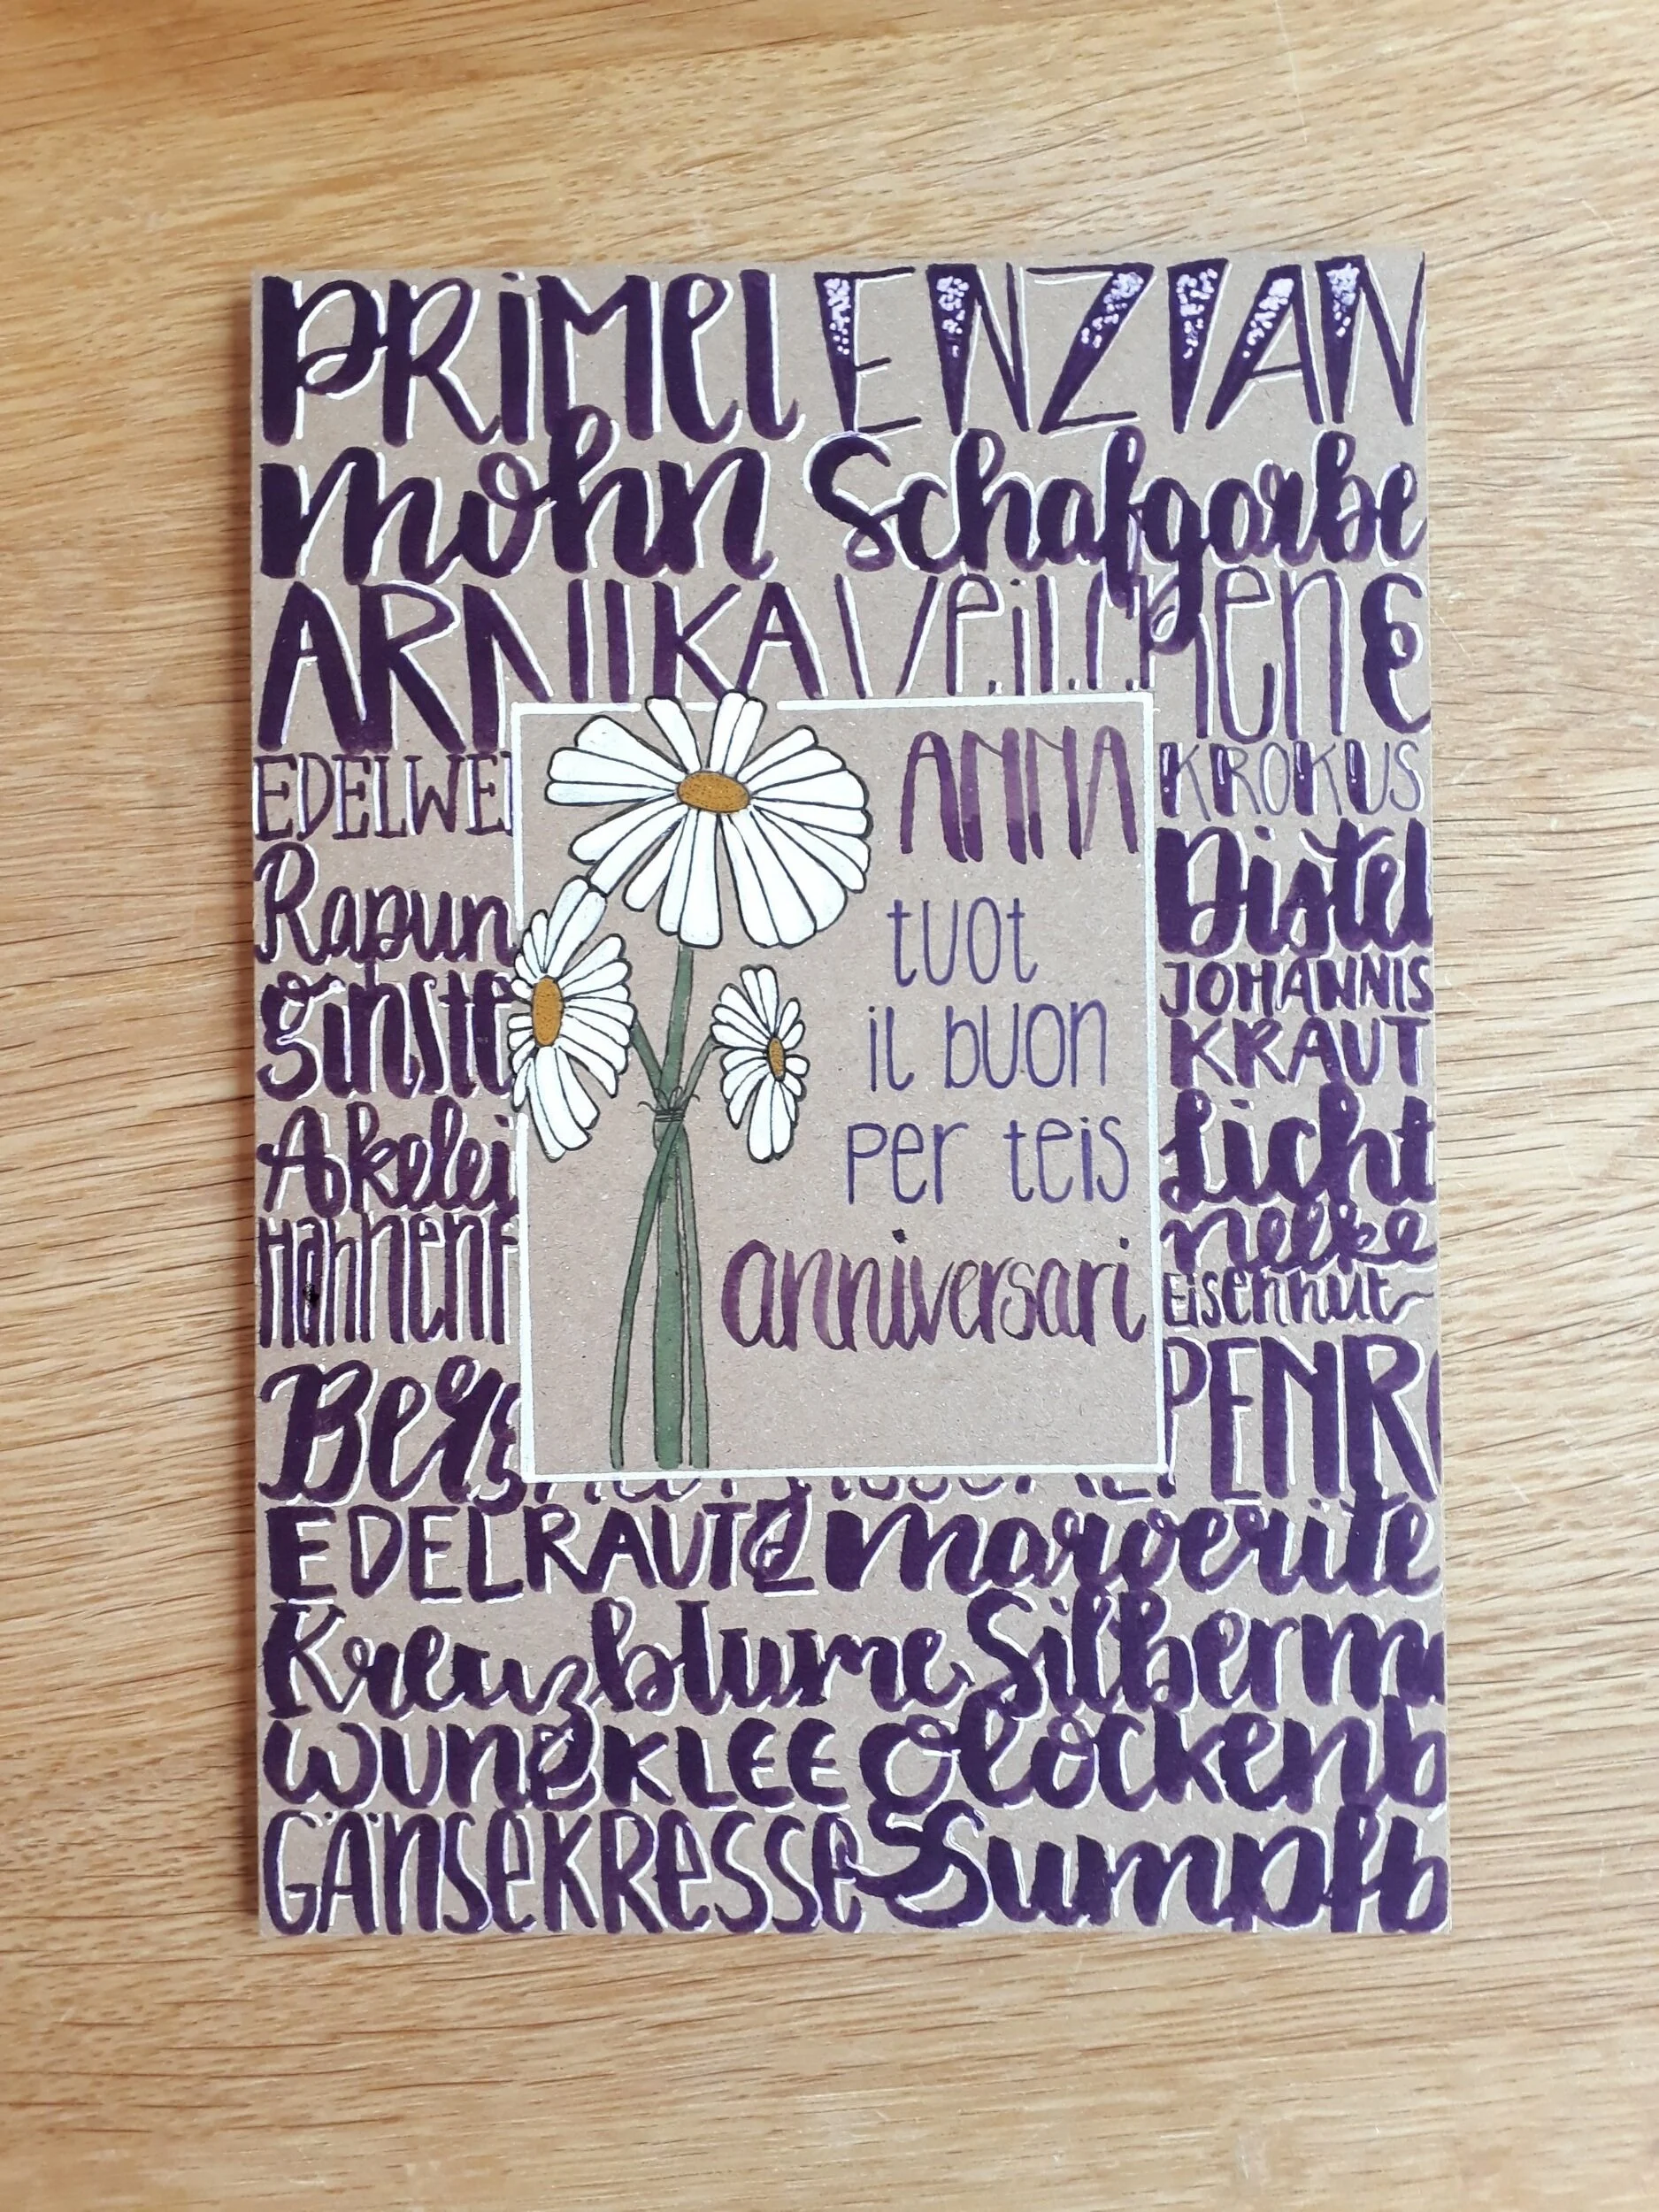 PRiMel ENZIAN
mohn Schafgarbe
ARNIKA Veilchen
EDELWEI
KROKUS
ANNA
tuot
il buon
per teis
anniversari
Rapun
Distel
ginste
JOHANNIS
KRAUT
Akelei
Licht
nelke
Hahnenf
Eisenhut
Berg
PENR
EDELRAUTE margerite
Kreuzblume Silberm
WUNDKLEE Glockenb
GÄNSEKRESSE Sumpfb